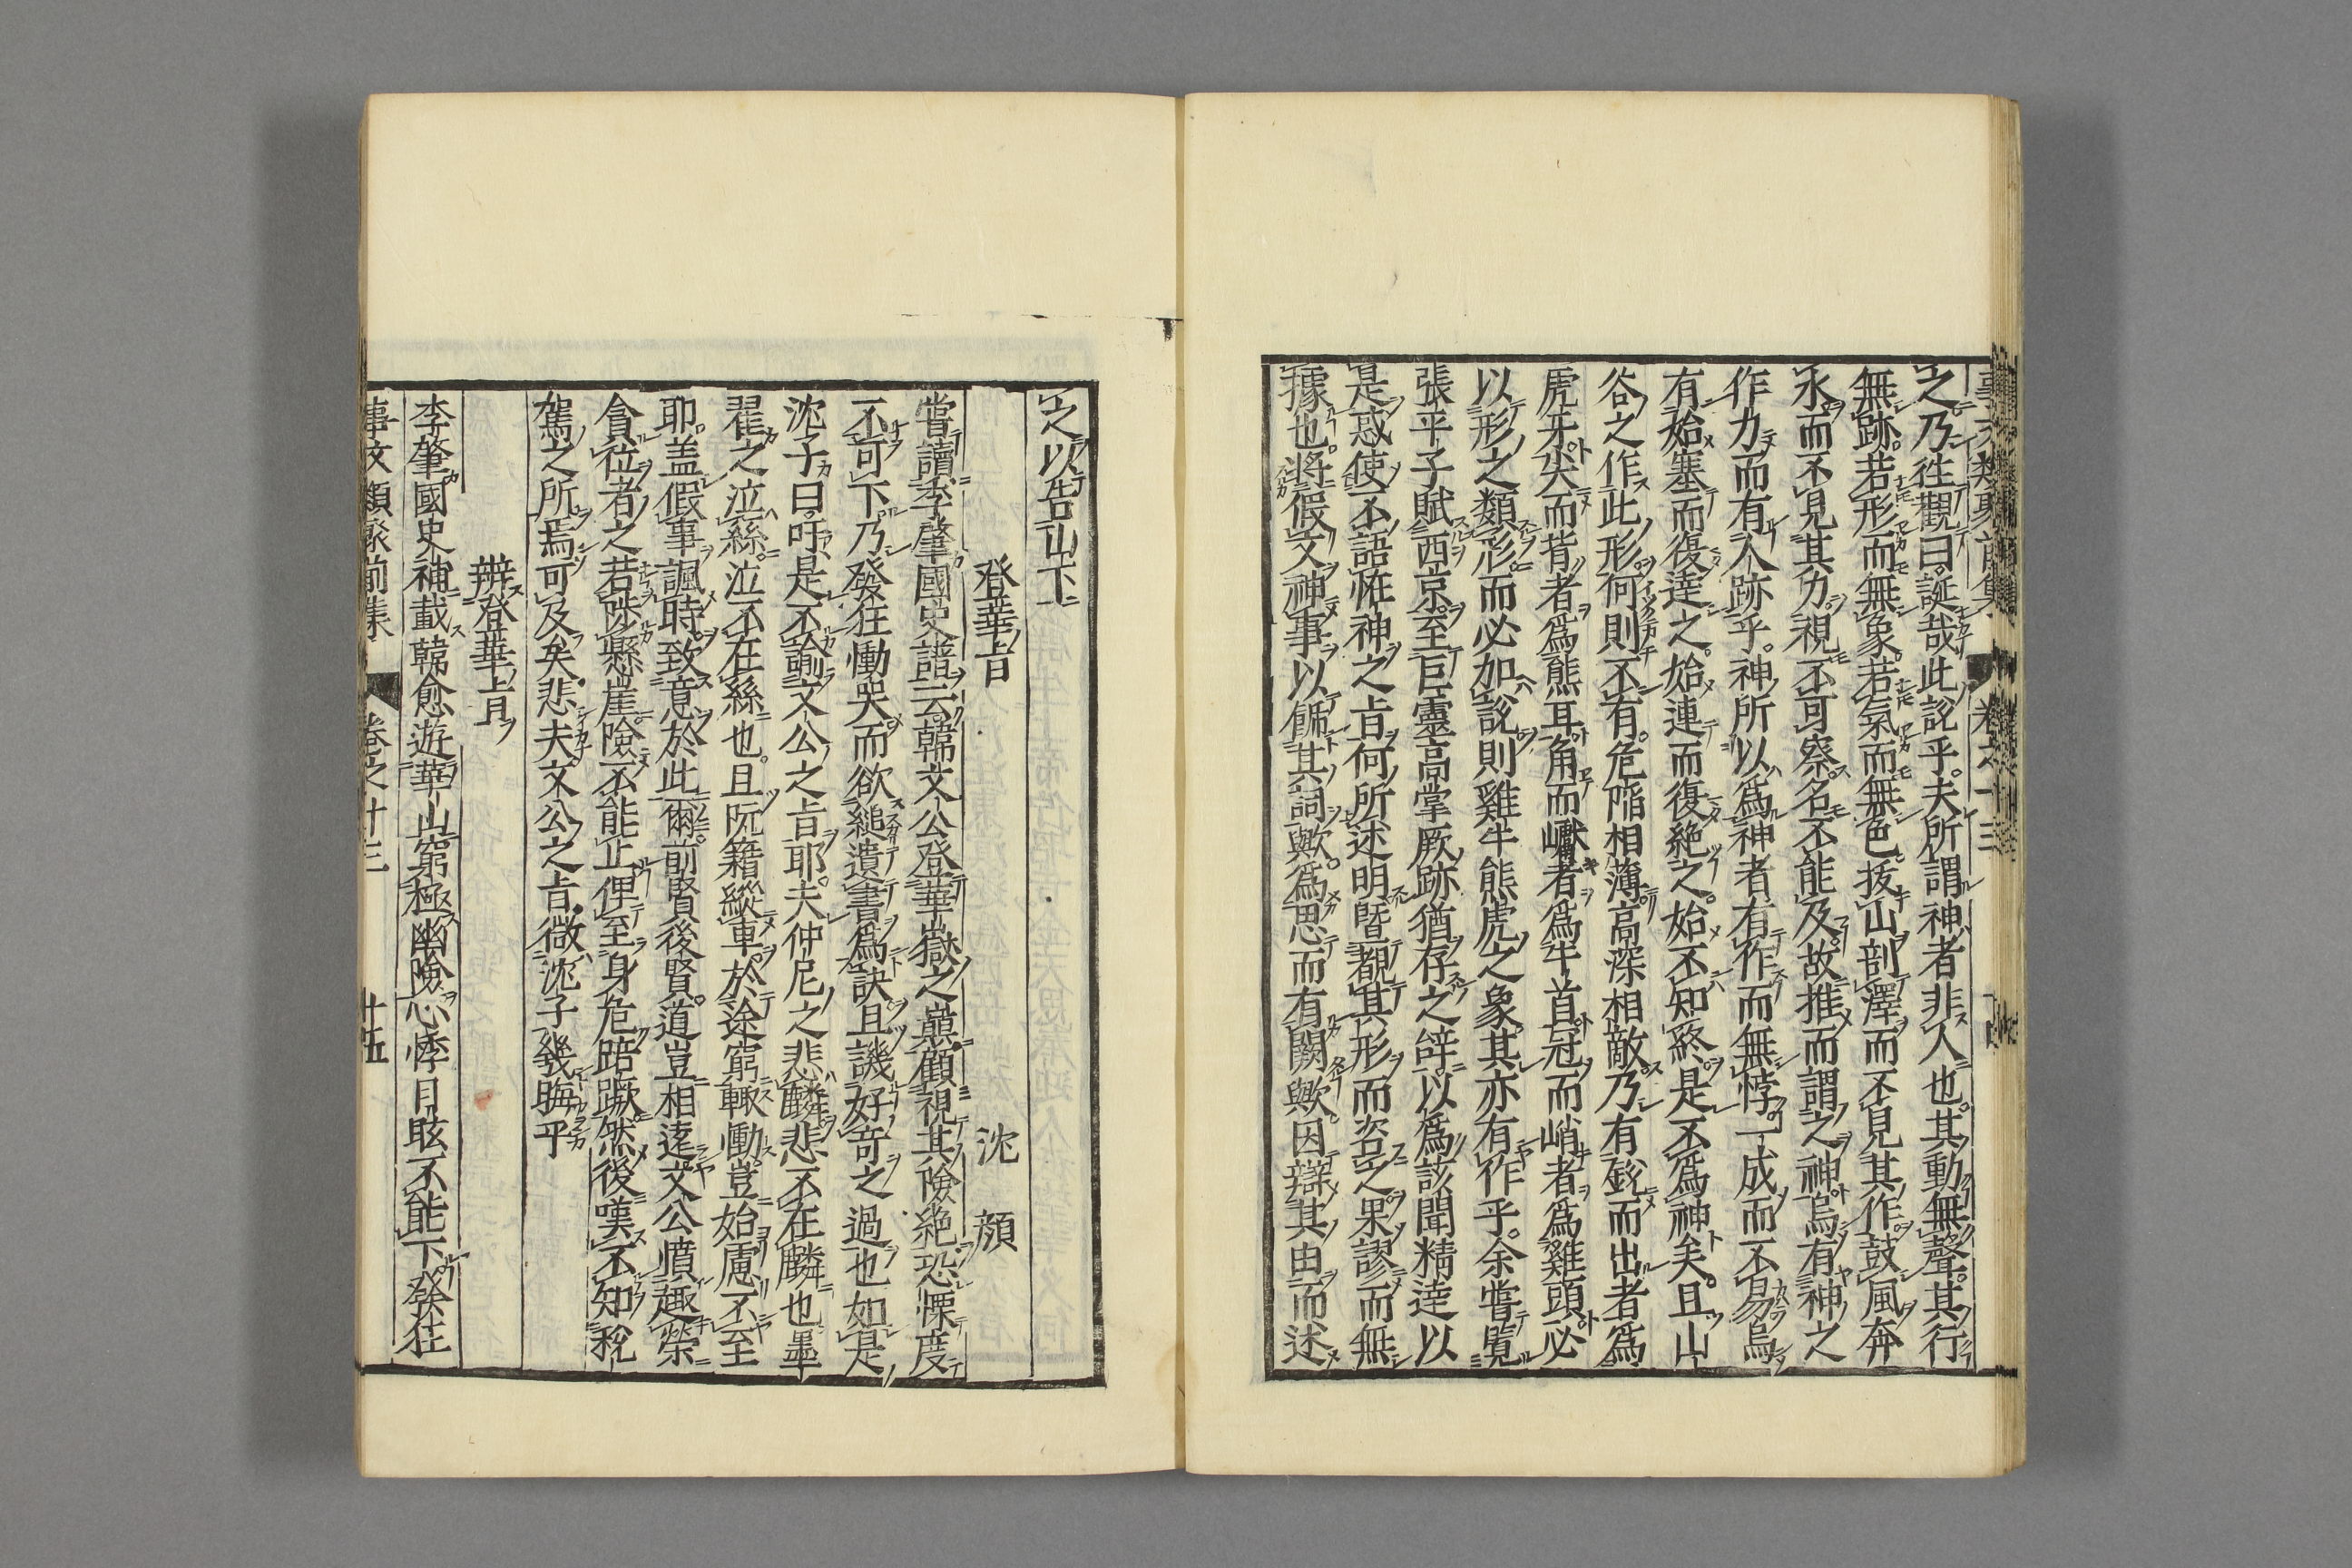 事文類聚前集 卷之十三
之乃徃觀曰誕哉此說乎夫所謂神者非人也其動無聲其行
無跡若形而無象若氣而無色拔山剖澤而不見其作鼓風奔
水而不見其力視不可察名不能及故推而謂之神烏有神之
作力而有人跡乎神所以爲神者有作而無悖一成而不易烏
有始塞而復達之始連而復絶之始不知終是不爲神矣且山
谷之作此形何則不有危隘相薄高深相敵乃有銳而出者爲
虎牙尖而背者爲熊耳角而巘者爲牛首冠而峭者爲雞頭必
以形之類形而必加說則雞牛熊虎之象其亦有作乎余嘗覽
張平子賦西京至巨靈高掌厥跡猶存之辝以爲該聞精達以
是惑使不語恠神之㫖何所述明曁覩其形而咨之果謬而無
據也將假文神事以餙其詞歟爲思而有闕歟因辯其由而述
之以告山下
登華㫖 沈 顔
嘗讀李肇國史譜云韓文公登華嶽之巔顧視其險絶恐慄度
不可下乃發狂慟哭而欲縋遺書爲訣且譏好奇之過也如是
沈子曰吁是不諭文公之㫖耶夫仲尼之悲麟悲不在麟也墨
翟之泣絲泣不在絲也且阮籍縱車於途窮輙慟豈始慮不至
耶盖假事諷時致意於此爾前賢後賢道豈相逺文公憤趣榮
貪位者之若陟懸崖險不能止俾至身危踣蹶然後嘆不知稅
駕之所焉可及矣悲夫文公之㫖微沈子幾晦乎
辨登華㫖
李肇國史補載韓愈遊華山窮極幽險心悸目眩不能下發狂
事文類聚前集 卷之十三 十五